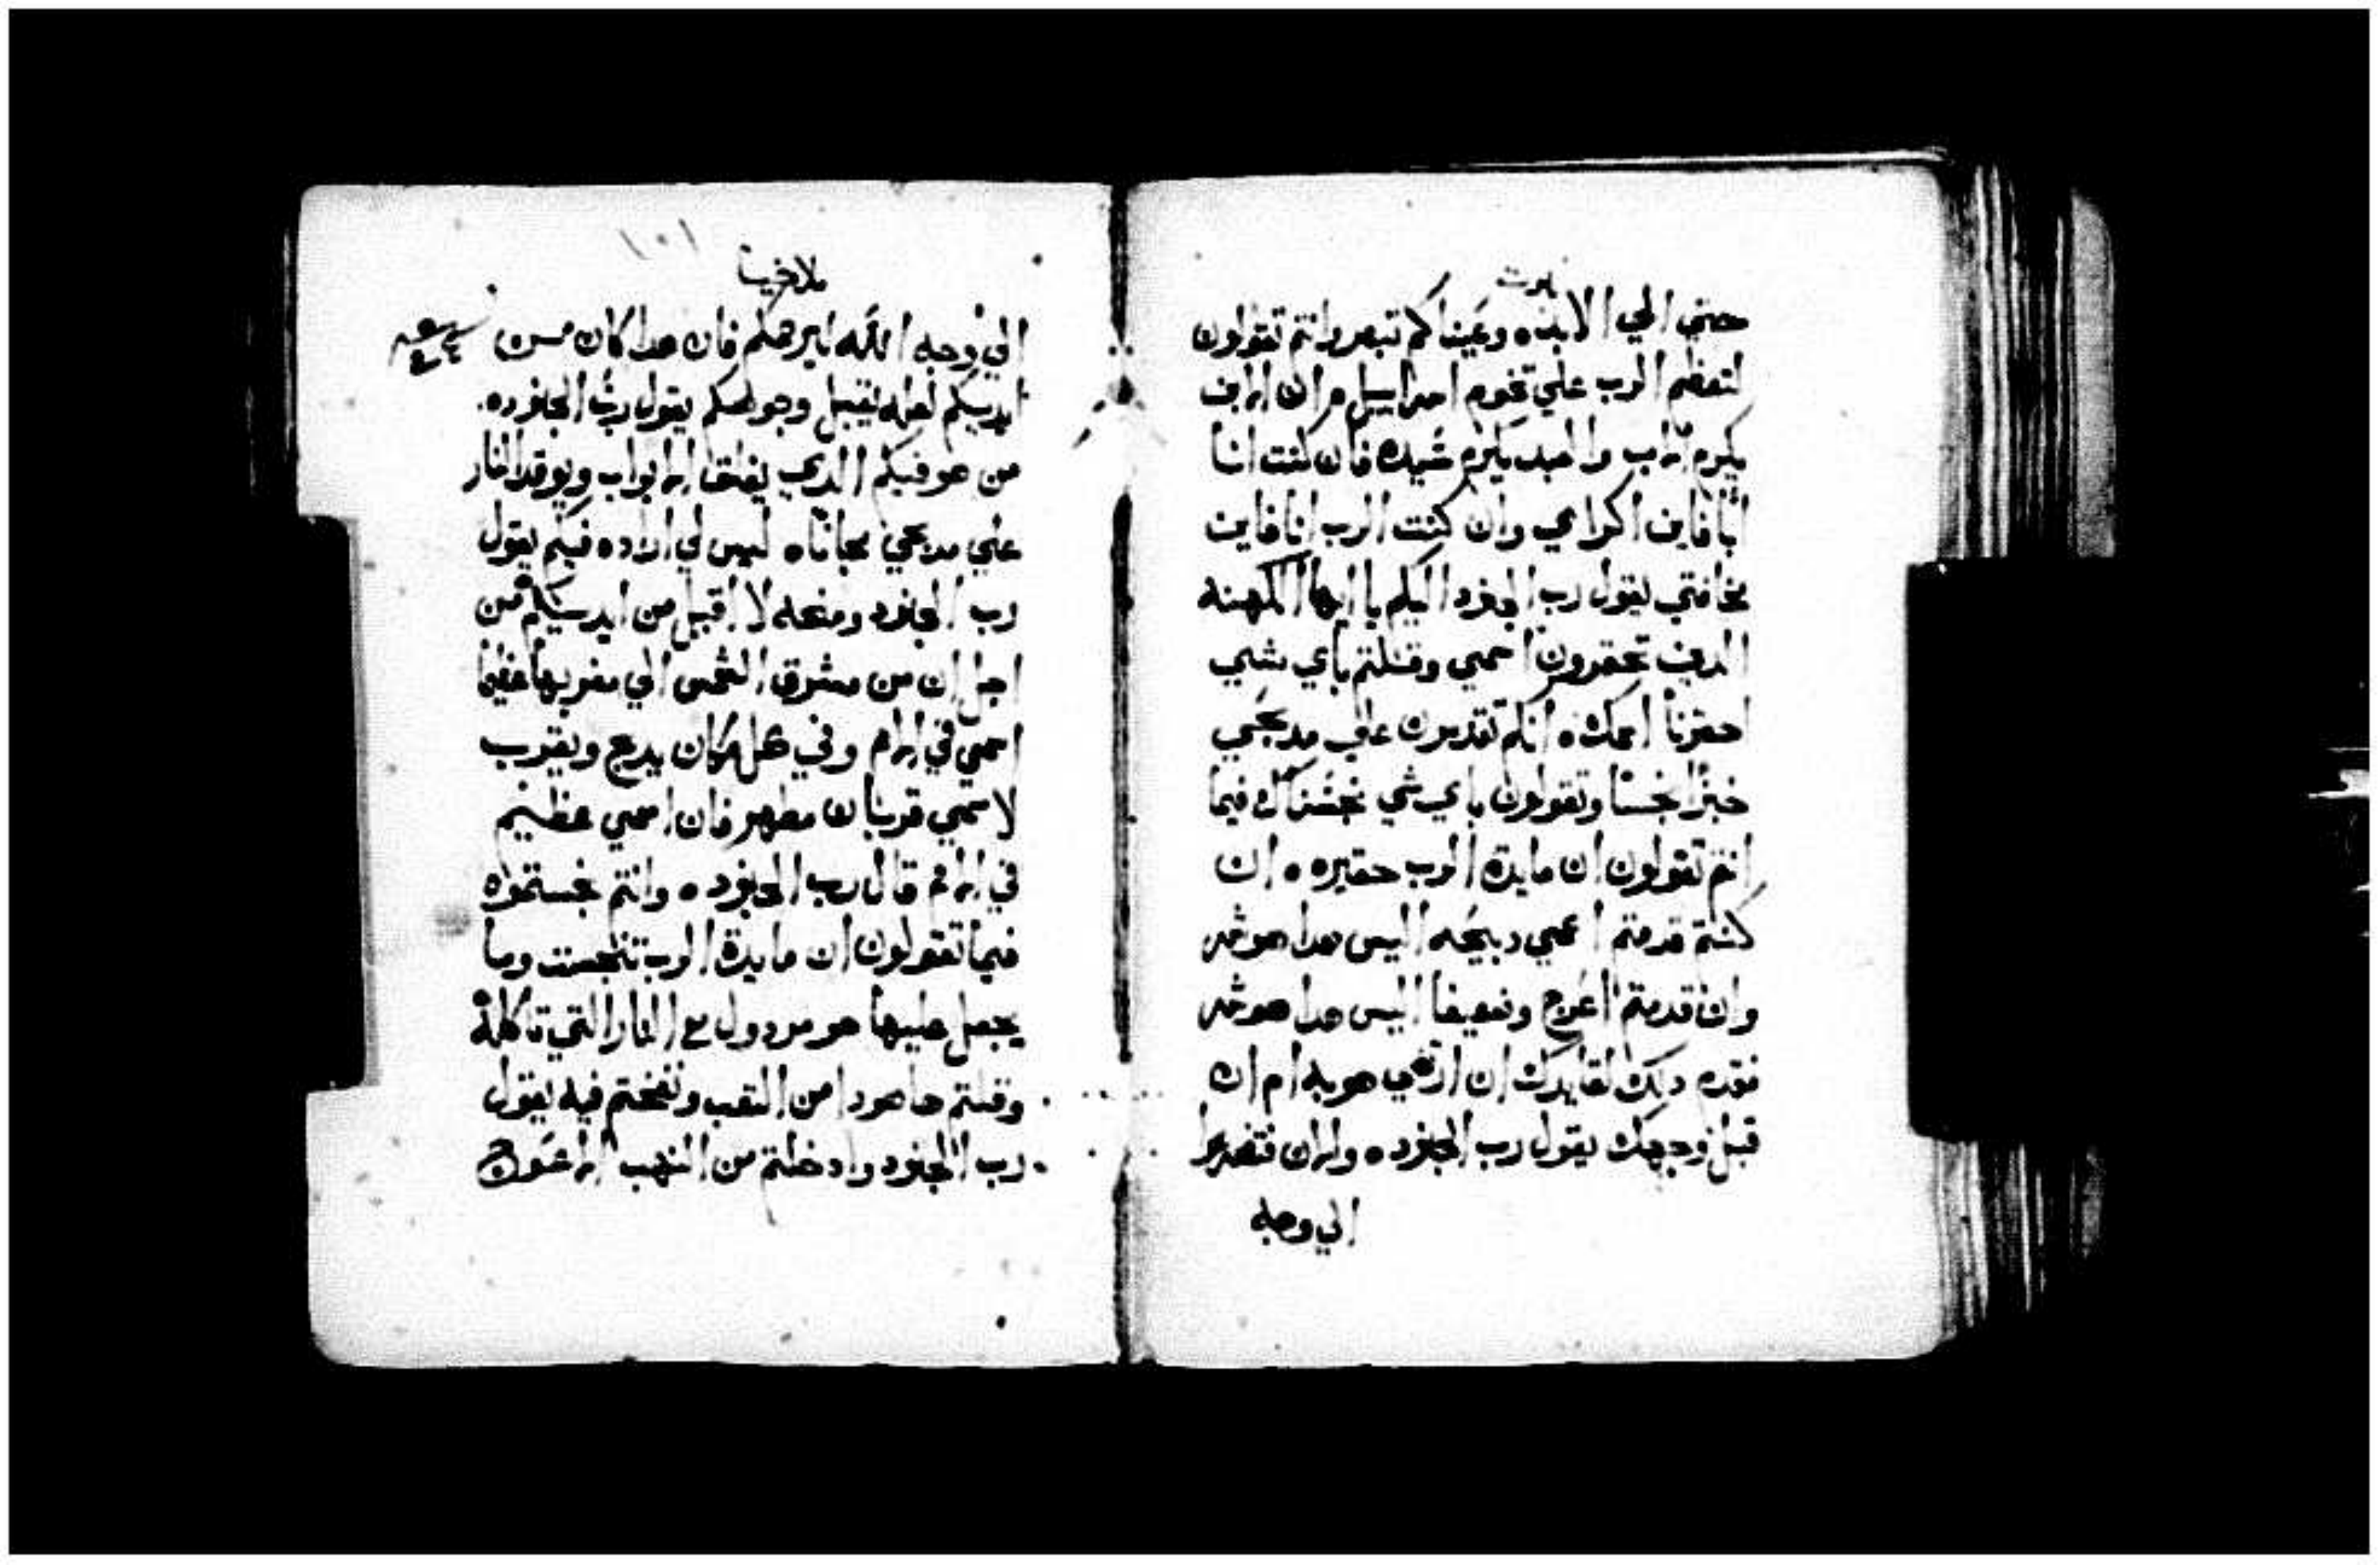 نبوت
حتي الي الابده وعيناكم تبصر وانتم تقولون
لتعظم الرب علي تخوم اسراييل ه ان الابن
يكرم الاب والعبد يكرم سيده فان كنت انا
أبا فاين اكرامي وان كنت الرب انا فاين
مخافتي يقول رب الجنود اليكم يا ايها الكهنه
الدين تحقرون اسمي وقلتم باي شي
احقرنا اسمك ه انكم تقدمون علي مدبحي
خبزا نجسا وتقولون باي شي نجسناك فيما
انتم تقولون ان مايدة الرب حقيره ه ان
كنتم قدمتم اعمي دبيحه اليس هدا هو شر
وان قدمتم اعرج وضعيفا اليس هدا هو شر
فقده دلك لقايدك ان ارتضي هو به ام ان
قبل وجهك يقول رب الجنود ه والان فتضرعوا
الي وجه
١٠١
ملاخيا
الي وجه الله ليرحمكم فان هدا كان من
ايديكم لعله يقبل وجوهكم يقول رب الجنود ه
من هو فيكم الدي يغلق الابواب ويوقد النار
علي مدبحي مجانا ه ليس لي اراده فيكم يقول
رب الجنود ومنحه لا اقبل من ايديكم من
اجل ان من مشرق الشمس الي مغربها عظيما
اسمي في الامم وفي كل مكان يدبح ويقرب
لاسمي قربان مطهر فان اسمي عظيم
في الامم قال رب الجنود ه وانتم نجستموه
فيما تقولون ان مايدة الرب تنجست وما
يجعل عليها هو مردول مع النار التي تاكله
وقلتم ها هودا من التعب ونفختم فيه يقول
رب الجنود وادخلتم من النهب الاعوج